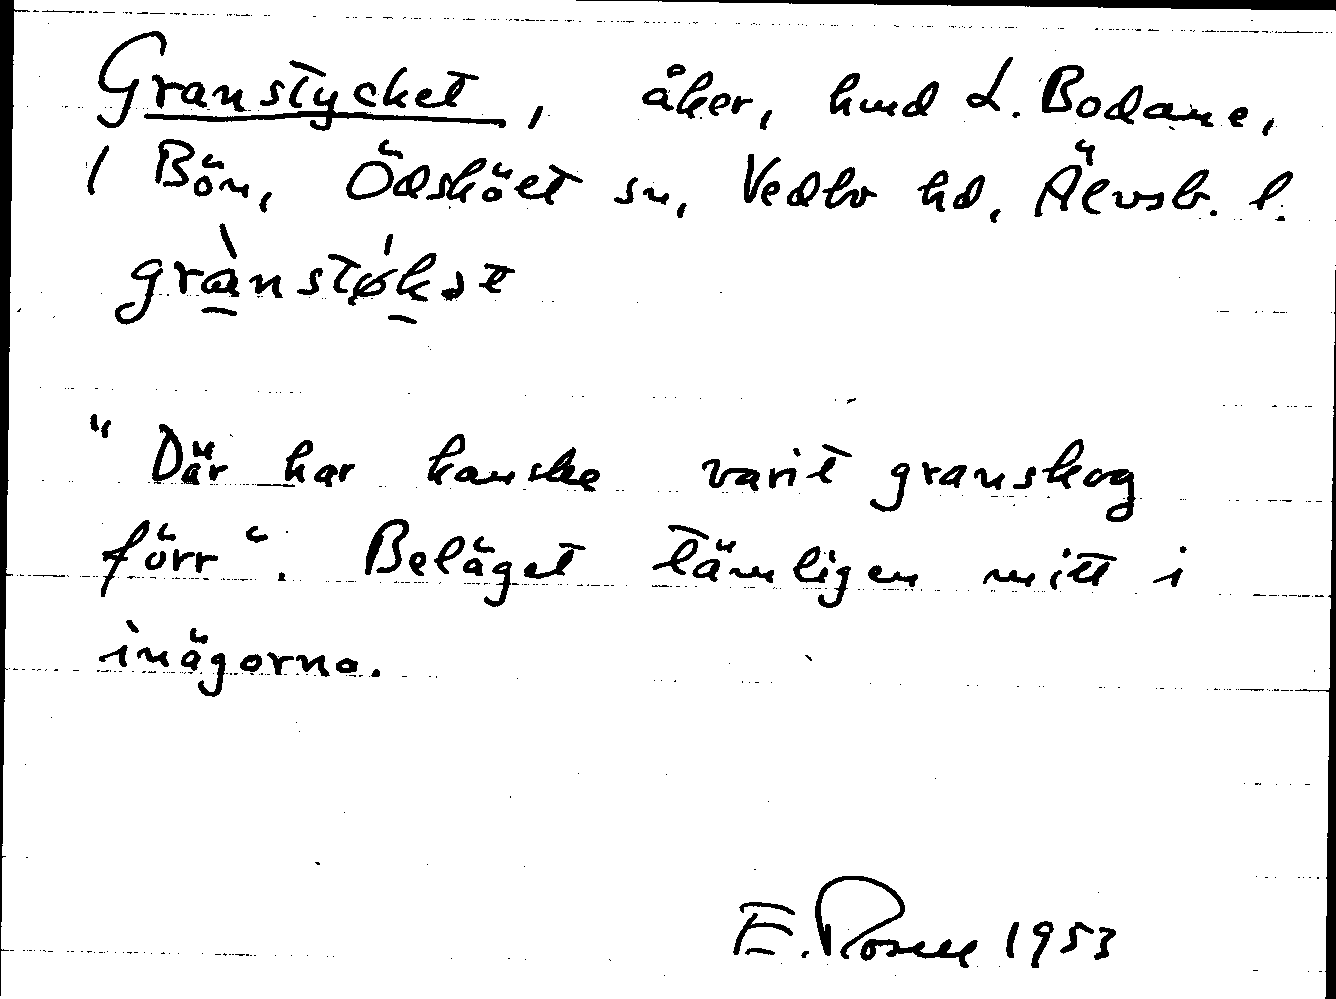 Granstycket, åker, hmd L. Bodane,
1 Bön, Ödsköet sn, Vedbo hd, Älvsb. l.
grànstǿkət
"Där har kanske varit granskog
förr". Beläget tämligen mitt i
inägorna.
E. Rosell 1953